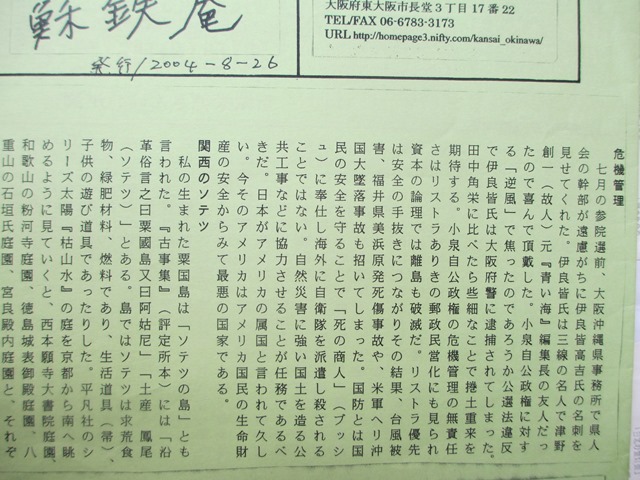 蘇鉄庵
発行/2004-8-26
大阪府東大阪市長堂3丁目17番22
TEL/FAX 06-6783-3173
URL http://homepage3.nifty.com/kansai_okinawa/
危機管理
七月の参院選前、大阪沖縄県事務所で県人
会の幹部が遠慮がちに伊良皆高吉氏の名刺を
見せてくれた。伊良皆氏は三線の名人で津野
創一(故人)元『青い海』編集長の友人だっ
たので喜んで頂戴した。小泉自公政権に対す
る「逆風」で焦ったのであろうか公選法違反
で伊良皆氏は大阪府警に逮捕されてしまった。
田中角栄に比べたら些細なことで捲土重来を
期待する。小泉自公政権の危機管理の無責任
さはリストラありきの郵政民営化にも見られ
資本の論理では離島も破滅だ。リストラ優先
は安全の手抜きにつながりその結果、台風被
害、福井県美浜原発死傷事故や、米軍ヘリ沖
国大墜落事故も招いてしまった。国防とは国
民の安全を守ることで「死の商人」(ブッシ
ュ)に奉仕し海外に自衛隊を派遣し殺される
ことではない。自然災害に強い国土を造る公
共工事などに協力させることが任務であるべ
きだ。日本がアメリカの属国と言われて久し
い。今そのアメリカはアメリカ国民の生命財
産の安全からみて最悪の国家である。
関西のソテツ
私の生まれた粟国島は「ソテツの島」とも
言われた。『古事集』(評定所本)には「沿
革俗言之曰粟國島又曰阿姑尼」「土産 鳳尾
(ソテツ)」とある。島ではソテツは求荒食
物、緑肥材料、燃料であり、生活道具(箒)、
子供の遊び道具であったりした。平凡社のシ
リーズ太陽『枯山水』の庭を京都から南へ眺
めるように見ていくと、西本願寺大書院庭園、
和歌山の粉河寺庭園、徳島城表御殿庭園、八
重山の石垣氏庭園、宮良殿内庭園と、それぞ